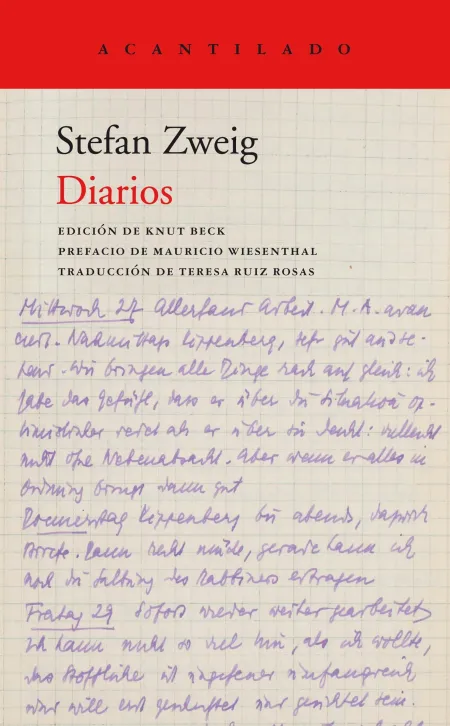 ACANTILADO
Stefan Zweig
Diarios
EDICIÓN DE KNUT BECK
PREFACIO DE MAURICIO WIESENTHAL
TRADUCCIÓN DE TERESA RUIZ ROSAS
Mittwoch 27 Allerhand Arbeit. M. A.
Nachmittags Kippenberg, sehr gut
Wir bringen alle Dinge rasch auf gleich: ich
habe das Gefühl, dass er über die Situation
redet als er über sie denkt: vielleicht
nicht ohne Nebenabsicht. Aber wenn er alles in
Ordnung bringt dann gut
Donnerstag Kippenberg bis abends,
Briefe. Dann recht müde, gerade kann ich
noch die des Rabbiners ertragen
Freitag 29 Sofort wieder weitergearbeitet
Ich kann nicht so viel tun, als ich wollte,
das Stoffliche ist ungeheuer umfangreich
und will erst und gesichtet sein.